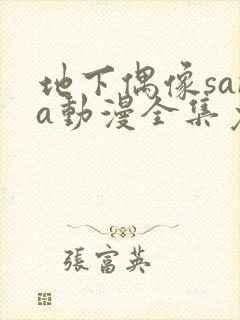 地下偶像sa
a動漫全集
張富英